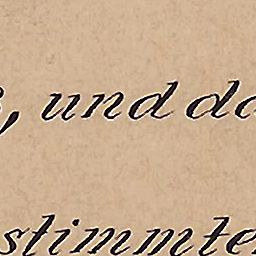 , und da
stimmte